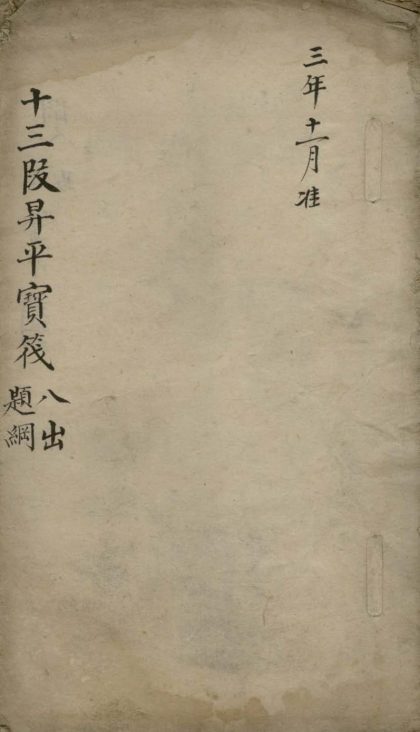 三年十一月准
十三段昇平寶筏
八出
題綱